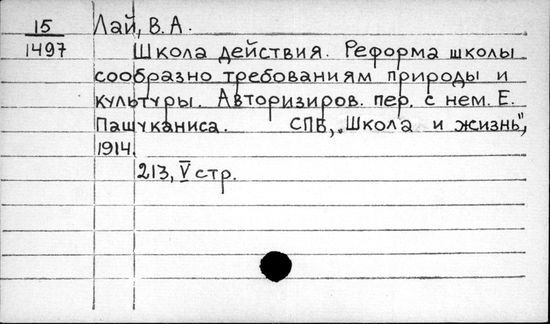 15
1497
Лай, В. А.
Школа действия. Реформа школы
сообразно требованиям природы и
культуры. Авторизиров. пер. с нем. Е.
Пашуканиса. СПБ, „Школа и жизнь",
1914.
213, V стр.